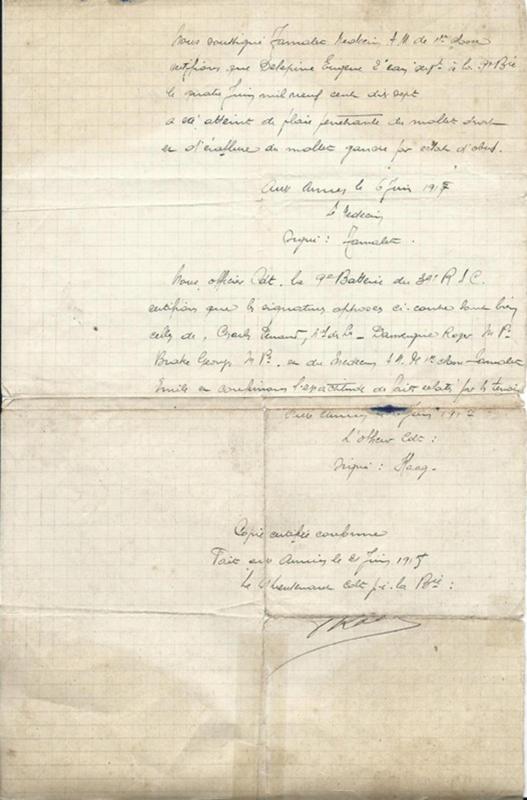 Nous soussigné Jamalet Médecin A.M. de 1re classe
certifions que Delepine Eugène 2e can. serv. à la 9e Bie
le quatre Juin mil neuf cent dix sept
a été atteint de plaie pénétrante du mollet droit
et d'éraflure du mollet gauche par éclat d'obus.
Aux Armées le 6 Juin 1917
Le Médecin
Signé : Jamalet.
Nous, officier Cdt. la 9e Batterie du R.A.C.
certifions que les signatures apposées ci-contre sont bien
celles de, Charles Roger M. P.
Georges M. P. et du Médecin A.M. de 1re classe Jamalet
Emile et confirmons l'exactitude du fait relaté par les témoins
Aux Armées Juin 1917
L'officier Cdt :
Signé : Haag.
Copie certifiée conforme
Fait aux Armées le Juin 191
Le Lieutenant Cdt la Bie :